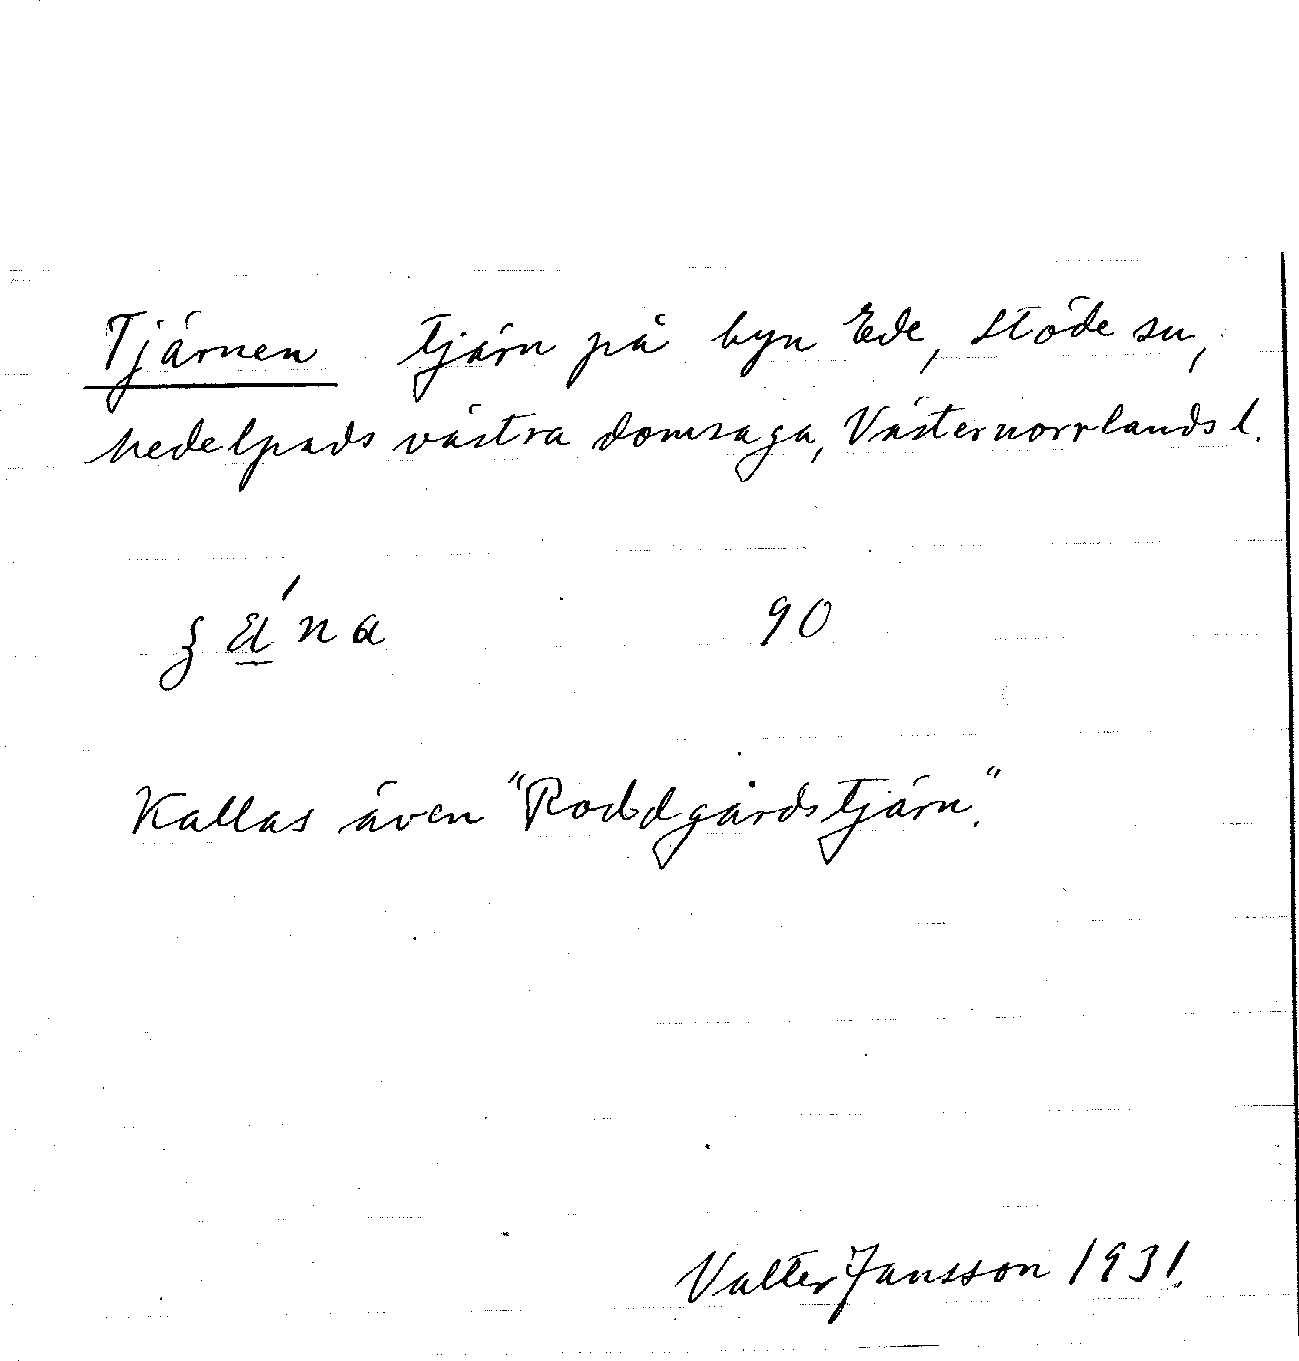 Tjärnen tjärn på byn Ede, Stöde sn,
Medelpads västra domsaga, Västernorrlands l.
90
Kallas även "Roddgårdstjärn."
Valter Jansson 1931.